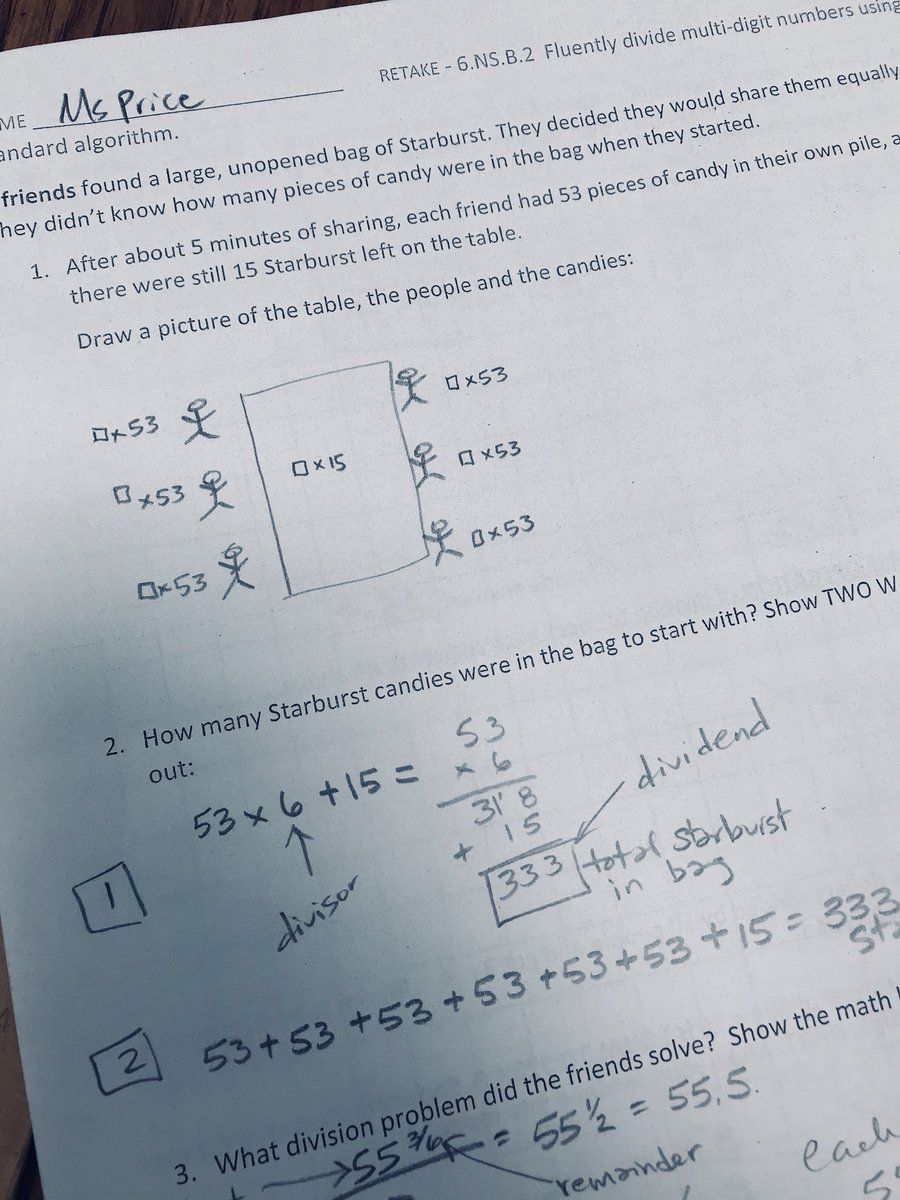 RETAKE - 6.NS.B.2 Fluently divide multi-digit numbers using
ME Ms Price
andard algorithm.
friends found a large, unopened bag of Starburst. They decided they would share them equally
hey didn't know how many pieces of candy were in the bag when they started.
1. After about 5 minutes of sharing, each friend had 53 pieces of candy in their own pile, a
there were still 15 Starburst left on the table.
Draw a picture of the table, the people and the candies:
□x53
□x53
□x53
□x15
□x53
□x53
□x53
2. How many Starburst candies were in the bag to start with? Show TWO W
out:
1
53 x 6 + 15 =
divisor
53
x 6
318
+ 15
333
dividend
total starburst
in bag
2
53 + 53 + 53 + 53 + 53 + 53 + 15 = 333
3. What division problem did the friends solve? Show the math
55 3/6 = 55 1/2 = 55.5.
remainder
each